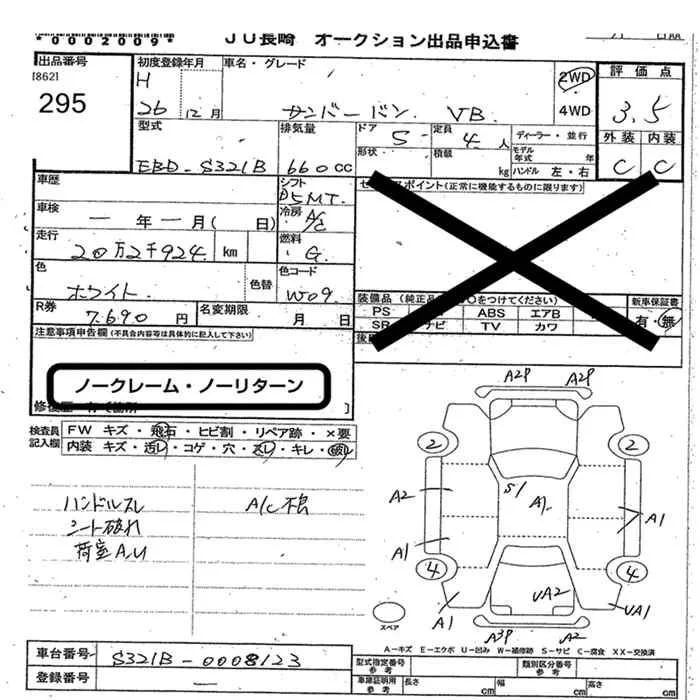 *0002009*
JU長崎 オークション出品申込書
出品番号
[862]
295
初度登録年月
H
26 12月
車名・グレード
サンバーバン VB
2WD
4WD
評価点
3.5
外装 内装
C C
型式
EBD-S321B
排気量
660cc
ドア 5
形状
定員 4人
積載 kg
ディーラー・並行
モデル年式 年
ハンドル 左・右
車歴
シフト
車検
ー年ー月( 日)
冷房 A/C
走行
20万2千924 km
燃料 G
色
ホワイト
色替
色コード
W09
R券
7.690円
名変期限
月 日
ポイント(正常に機能するものに限ります)
装備品
PS ABS エアB
SR TV カワ
新車保証書
有・無
注意事項申告欄(不具合内容等は具体的に記入して下さい)
ノークレーム・ノーリターン
検査員記入欄
FW キズ・飛石・ヒビ割・リペア跡・×要
内装 キズ・汚レ・コゲ・穴・スレ・キレ・破レ
ハンドルスレ
シート破れ
荷室A,U
A/C不良
A2P A2P
2 2
S1 A1
A2 A1
A1
4 4
A1 UA2 UA1
A3P A2
スペア
A-キズ E-エクボ U-凹み W-補修跡 S-サビ C-腐食 XX-交換済
車台番号
S321B-0008123
登録番号
ー
型式指定番号 参考
類別区分番号 参考
車庫証明用 参考
長さ cm 幅 cm 高さ cm